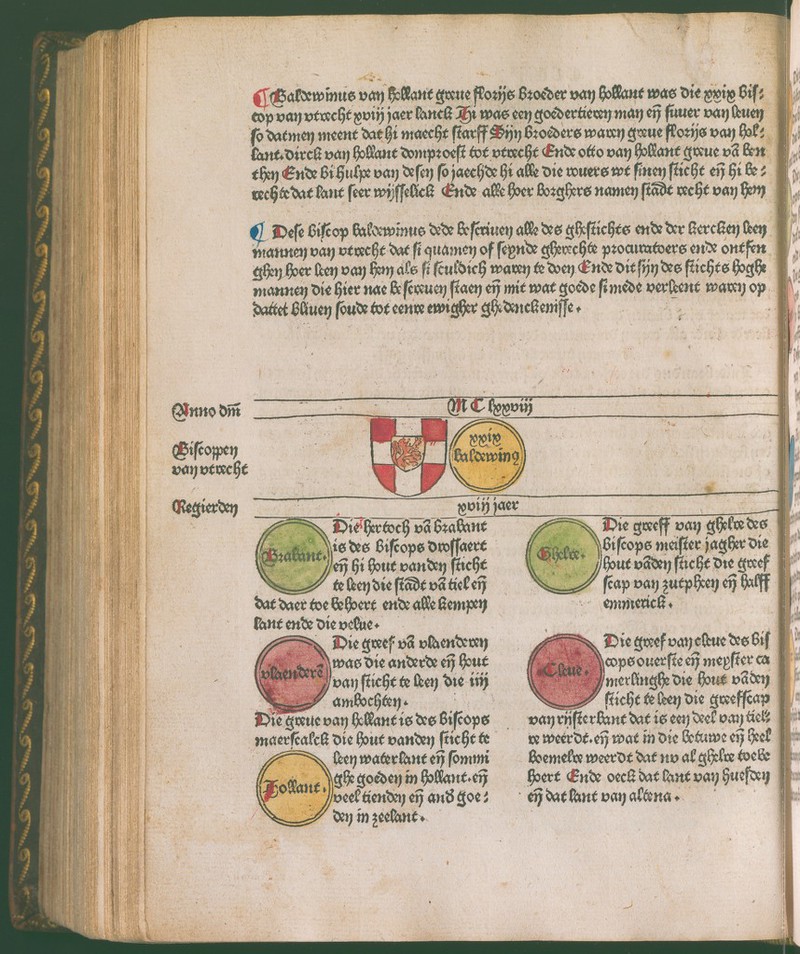 ¶ Baldewinus van hollant greue florijs broeder van hollant was die xxix bis⸗
cop van vtrecht xviij jaer lanck Hi was een goedertieren man eñ suuer van leuen
so datmen meent dat hi maecht starff Sijn broeders waren greue florijs van hol⸗
lant. dirck van hollant domproest tot vtrecht Ende otto van hollant greue vā ben
then Ende bi hulpe van desen so jaechde hi alle die rouers wt sinen sticht eñ hi be⸗
rechte dat lant seer wijsselick Ende alle hoer borghers namen stadt recht van hem
¶ Dese biscop baldewinus dede bescriuen alle des ghestichts ende der kercken leen
mannen van vtrecht dat si quamen of seynde gherechte procuratoers ende ontfen
ghen hoer leen van hem als si sculdich waren te doen Ende dit sijn des stichts hoghe
mannen die hier nae bescreuen staen eñ mit wat goede si mede verleent waren op
dattet bliuen soude tot eenre ewigher ghedenckenisse.
Anno dm̄ M C lxxviij
Biscoppen
van vtrecht
xxix
baldewing
Regierden xviij jaer
Brabant.
Die hertoch vā brabant
is des biscops drossaert
eñ hi hout vanden sticht
te leen die stadt vā tiel eñ
dat daer toe behoert ende alle kempen
lant ende die velue.
vlaenderē
Die greef vā vlaenderen
was die anderde eñ hout
van sticht te leen die iiij
ambochten.
Die greue van hollant is des biscops
maerscalck die hout vanden sticht te
Hollant.
leen waterlant eñ sommi
ghe goeden in hollant. eñ
veel tienden eñ and goe⸗
den in zeelant.
Ghelre.
Die greeff van ghelre des
biscops meister jagher die
hout vāden sticht die greef
scap van zutpheen eñ halff
emmerick.
Cleue.
Die greef van cleue des bis
cops ouerste eñ meyster ca
merlinghe die hout vāden
sticht te leen die greeffscap
van rijsterbant dat is een deel van tiels
re weerdt. eñ wat in die betuwe eñ heel
boemelre weerdt dat nv al ghelre toebe
hoert Ende oeck dat lant van huesden
eñ dat lant van altena.